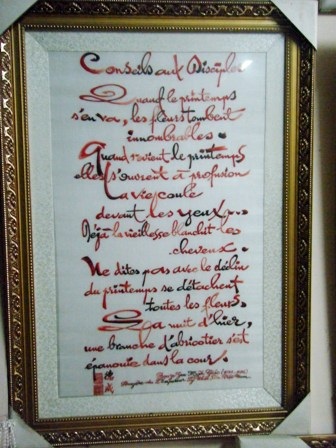 Conseils aux Disciples
Quand le printemps
s'en va, les fleurs tombent
innombrables.
Quand revient le printemps
elles s'ouvrent à profusion
La vie coule
devant les yeux...
Déjà la vieillesse blanchit les
cheveux.
Ne dites pas avec le déclin
du printemps se détachent
toutes les fleurs.
La nuit d'hier,
une branche d'abricotier s'est
épanouie dans la cour.